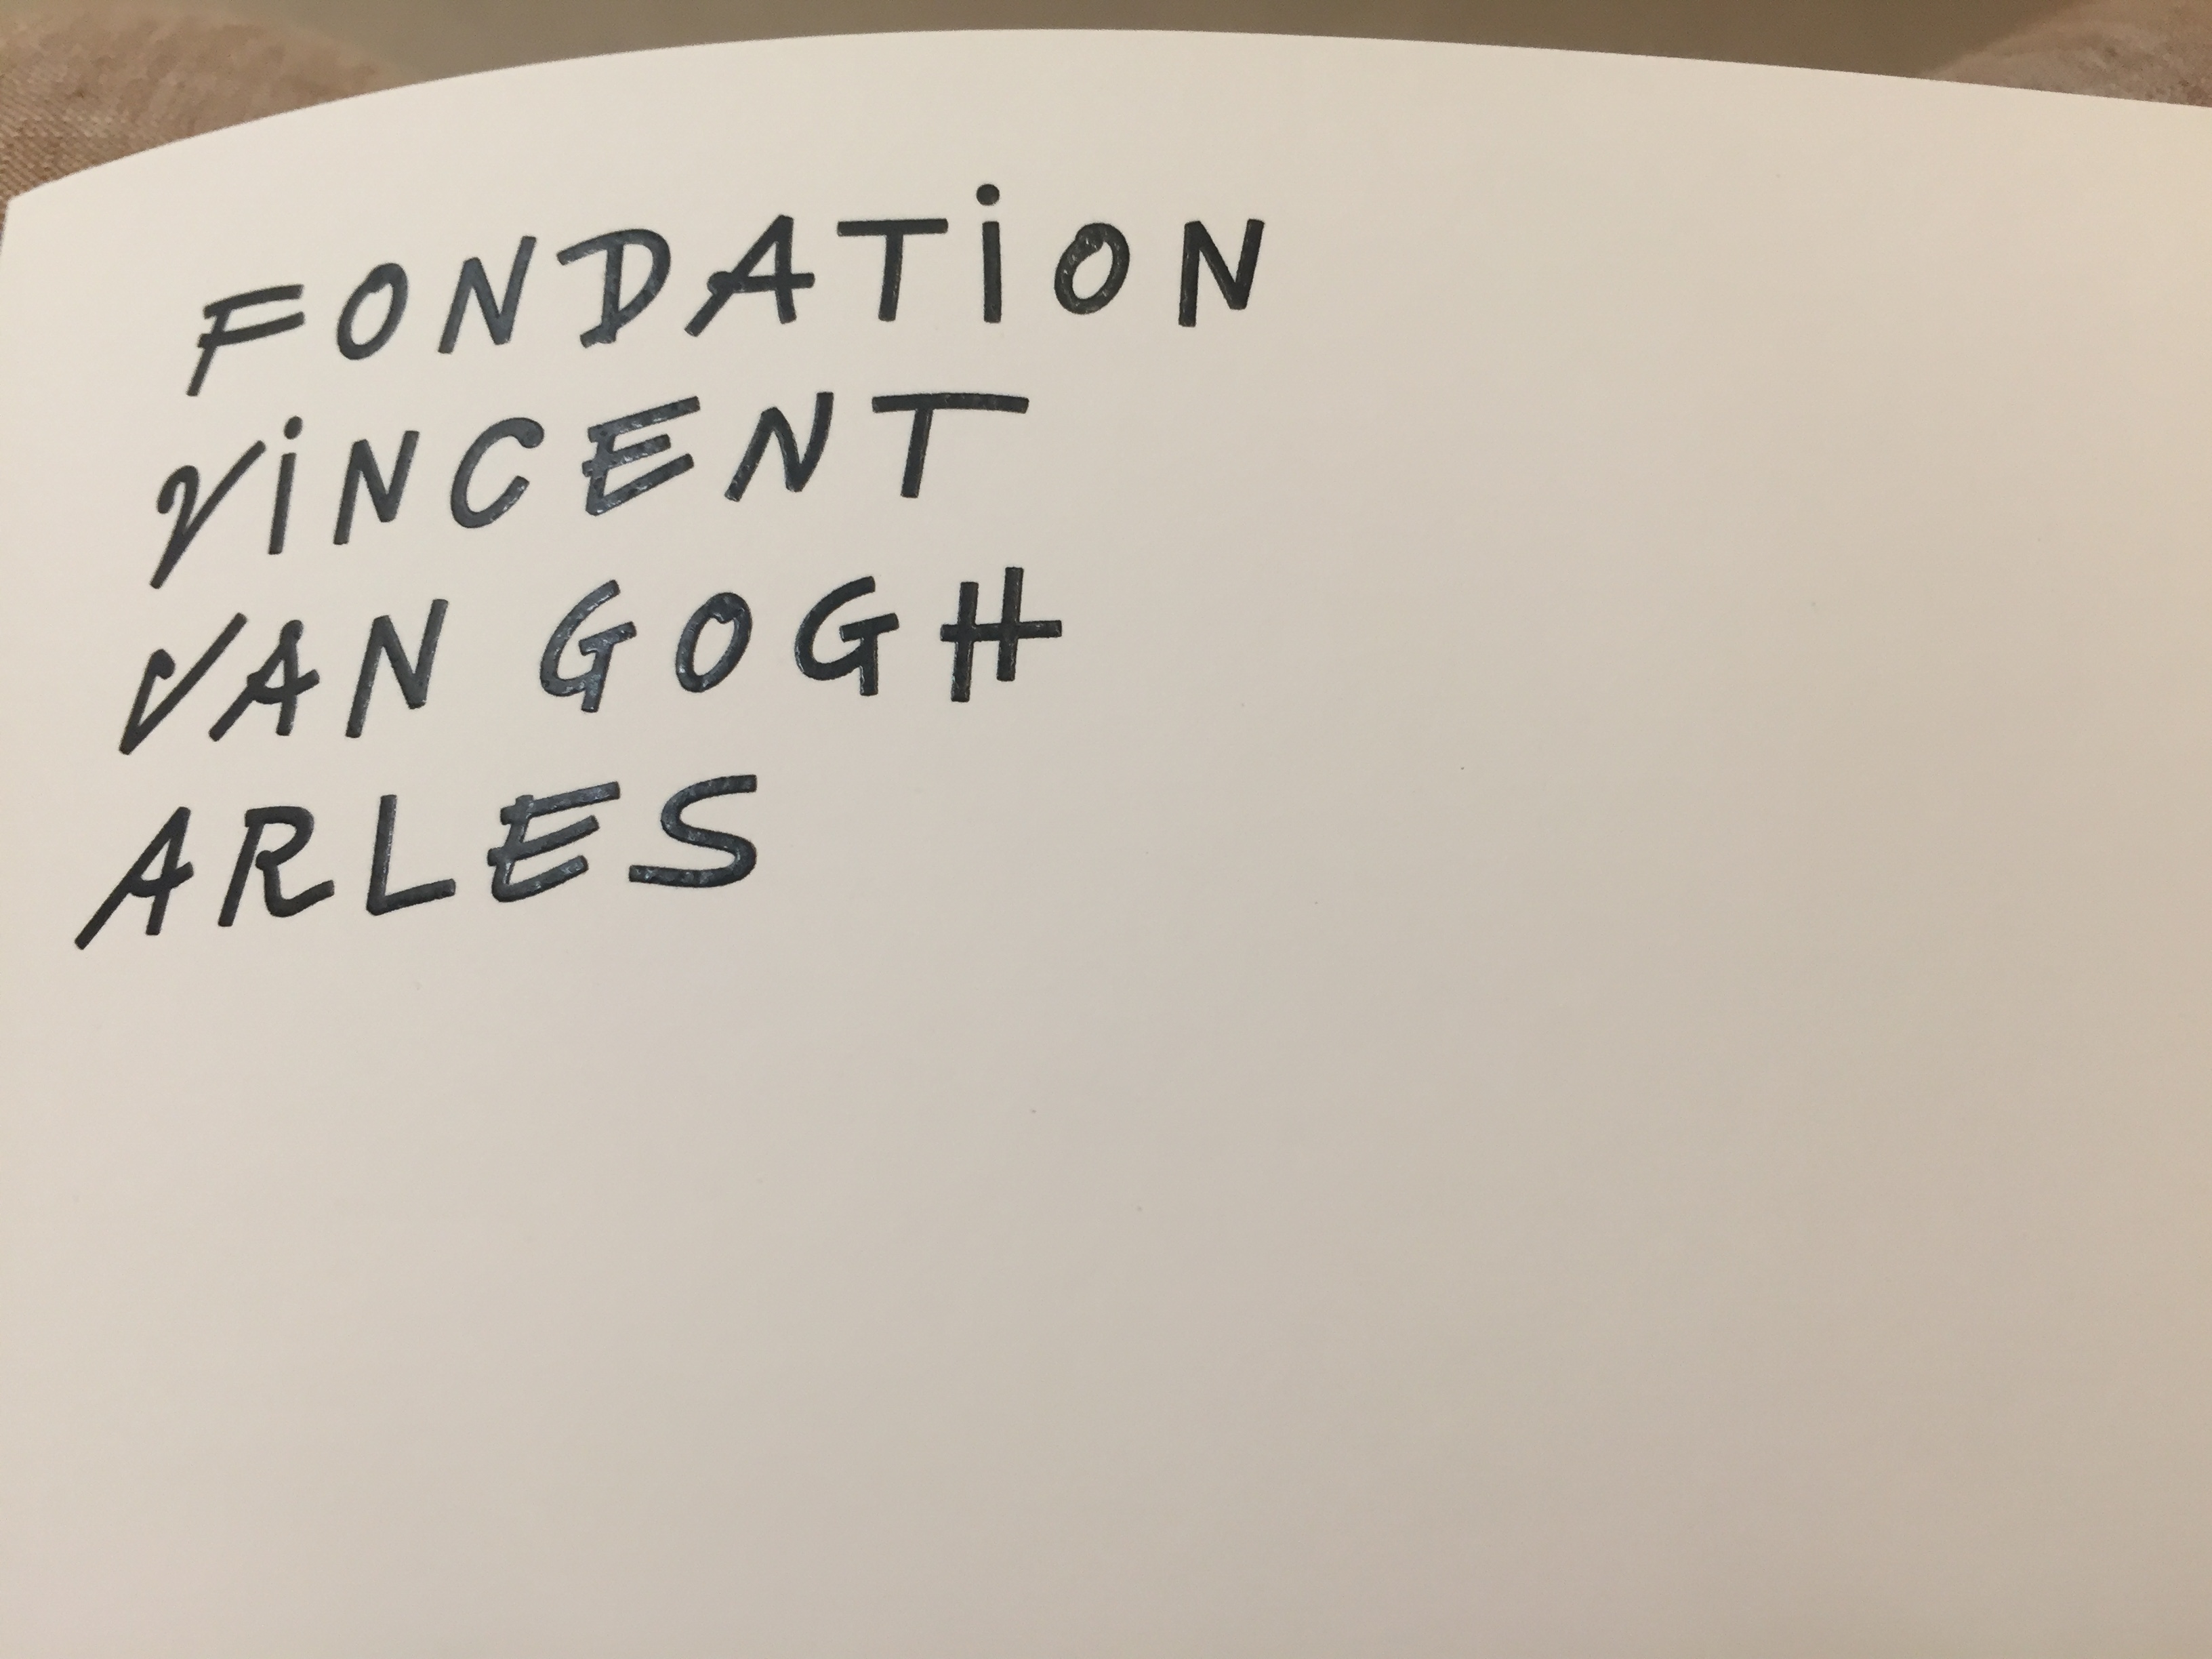 FONDATiON
ViNCENT
VAN GOGH
ARLES